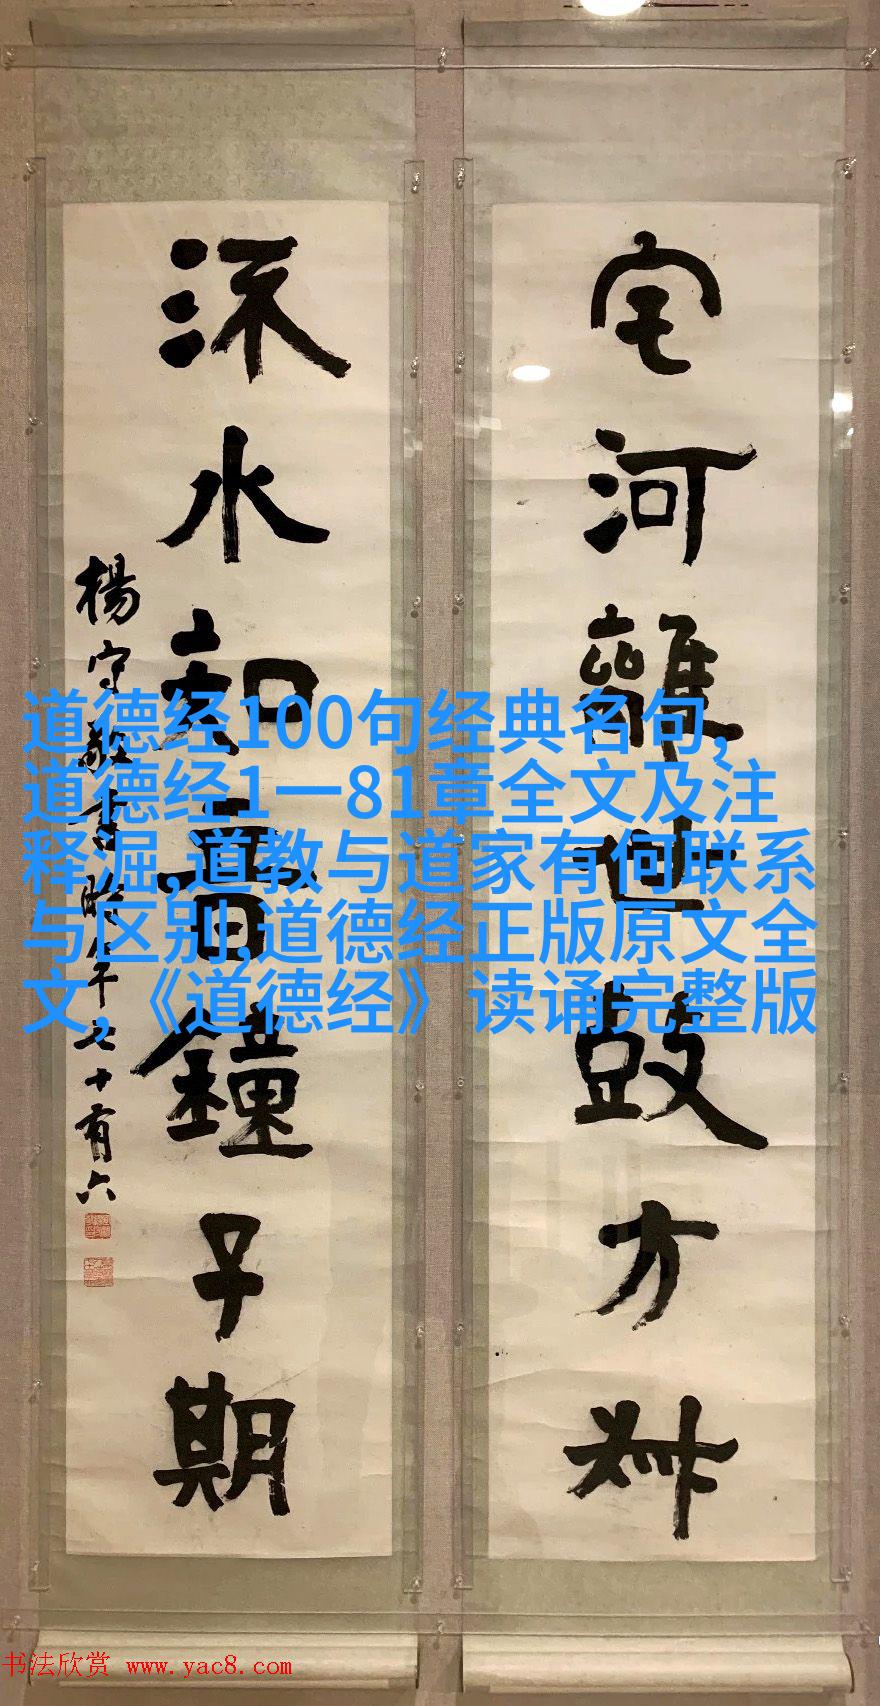 宅河離世鼓方叔
流水知音鐘子期
楊守敬書時年七十有六
道德经100句经典名句,
道德经1一81章全文及注
释淈,道教与道家有何联系
与区别,道德经正版原文全
文,《道德经》读诵完整版
书法欣赏 www.yac8.com